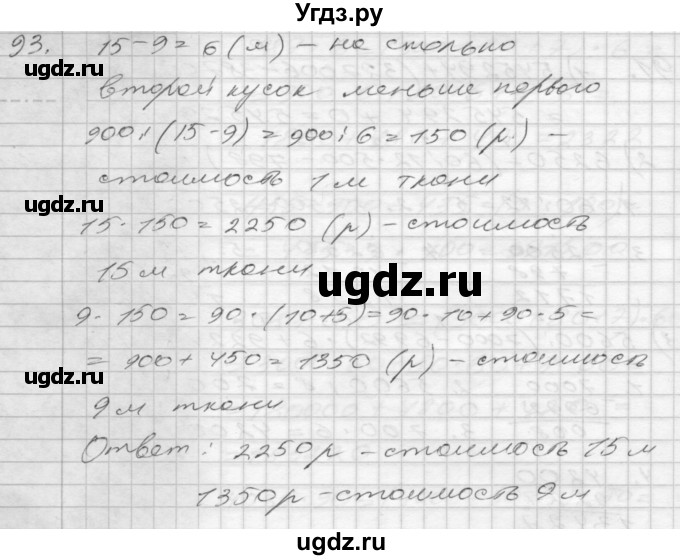 Угдз.ру
93. 15-9=6 (м) – на столько
второй кусок меньше первого
900:(15-9)=900:6=150 (р.) –
стоимость 1 м ткани
15·150=2250 (р) – стоимость
15 м ткани
9·150=90·(10+5)=90·10+90·5=
=900+450=1350 (р) – стоимость
9 м ткани
Ответ: 2250р – стоимость 15 м
1350р – стоимость 9 м
ugdz.ru
ugdz.ru
ugdz.ru
ugdz.ru
ugdz.ru
ugdz.ru
ugdz.ru
ugdz.ru
Угдз.ру